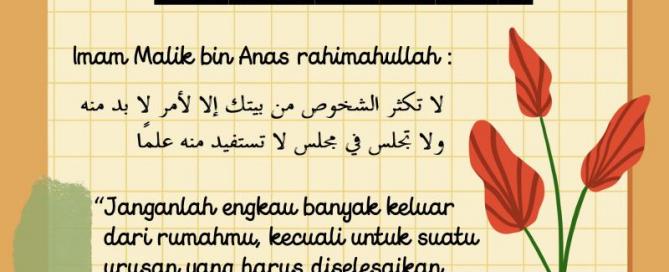 Imam Malik bin Anas rahimahullah :
لا تكثر الشخوص من بيتك إلا لأمر لا بد منه
ولا تجلس في مجلس لا تستفيد منه علمًا
“Janganlah engkau banyak keluar
dari rumahmu, kecuali untuk suatu
urusan yang harus diselesaikan